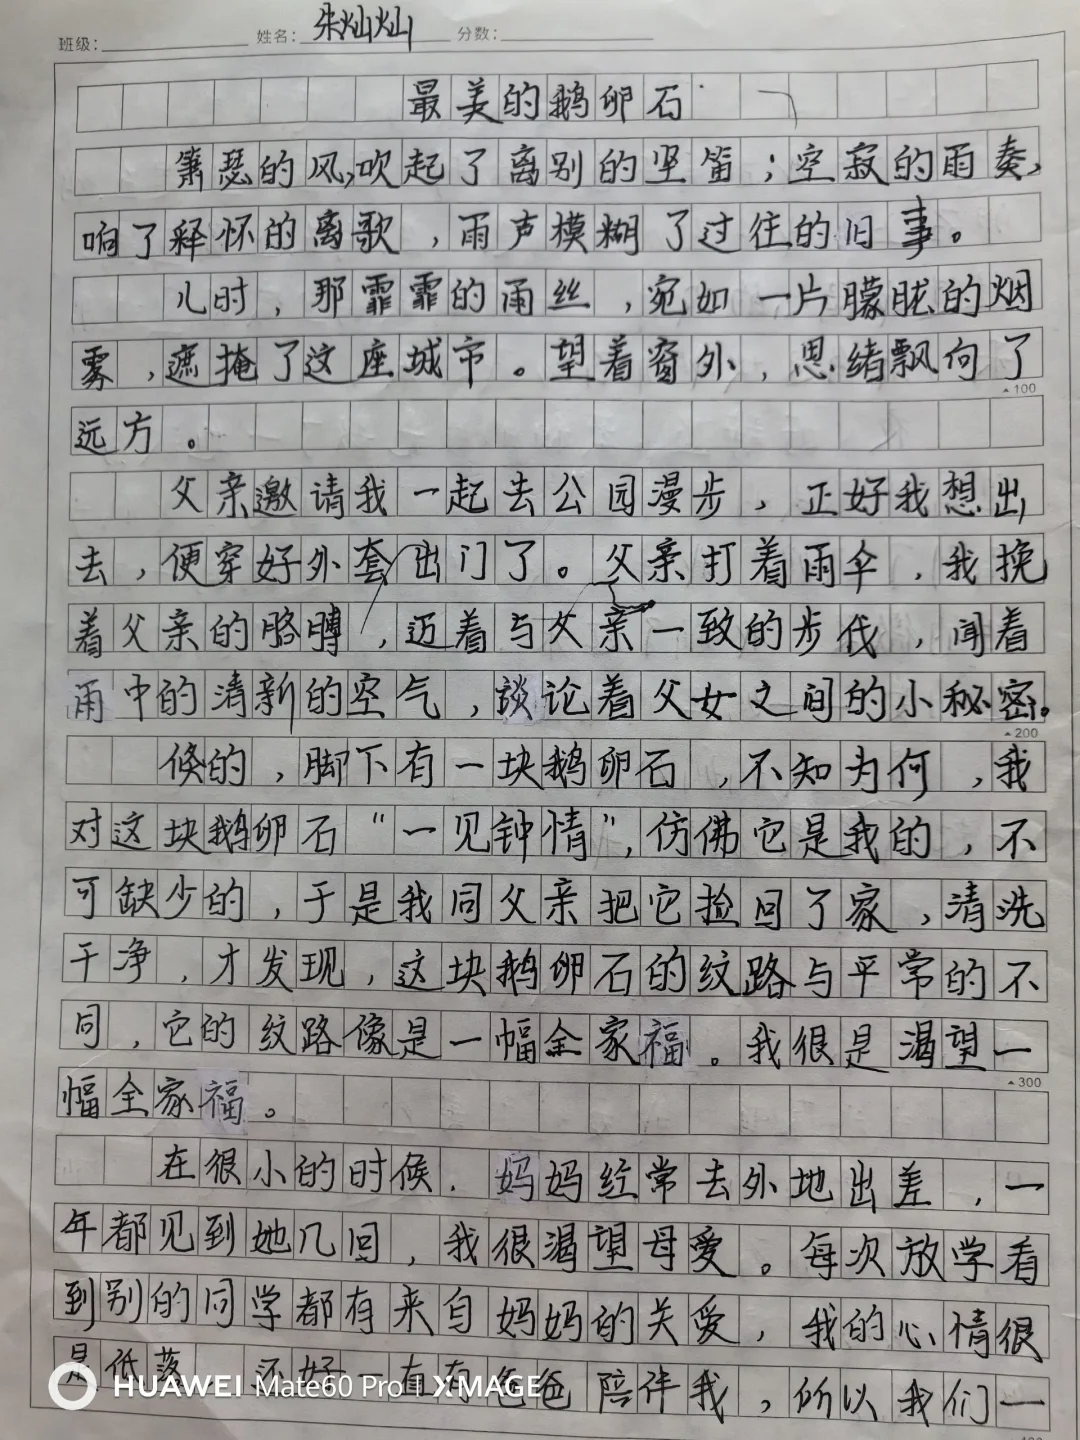 班级： 姓名：朱灿灿 分数：
最美的鹅卵石
箫瑟的风，吹起了离别的竖笛；空寂的雨奏，
响了释怀的离歌，雨声模糊了过往的旧事。
儿时，那霏霏的雨丝，宛如一片朦胧的烟
雾，遮掩了这座城市。望着窗外，思绪飘向了
100
远方。
父亲邀请我一起去公园漫步，正好我想出
去，便穿好外套出门了。父亲打着雨伞，我挽
着父亲的胳膊，迈着与父亲一致的步伐，闻着
雨中的清新的空气，谈论着父女之间的小秘密。
200
倏的，脚下有一块鹅卵石，不知为何，我
对这块鹅卵石“一见钟情”，仿佛它是我的，不
可缺少的，于是我同父亲把它捡回了家，清洗
干净，才发现，这块鹅卵石的纹路与平常的不
同，它的纹路像是一幅全家福。我很是渴望一
300
幅全家福。
在很小的时候．妈妈经常去外地出差，一
年都见到她几回，我很渴望母爱。每次放学看
到别的同学都有来自妈妈的关爱，我的心情很
是低落 还好一直有爸爸陪伴我，所以我们一
HUAWEI Mate60 Pro | XMAGE